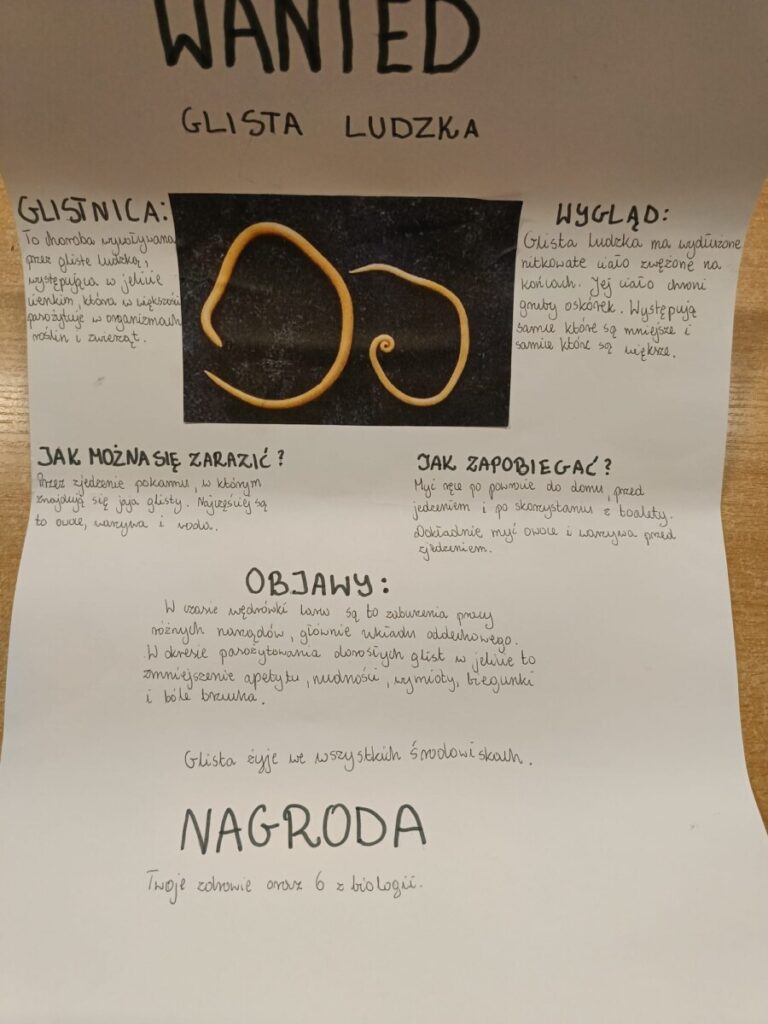 WANTED
GLISTA LUDZKA
GLISTNICA:
To choroba wywoływana
przez glistę ludzką,
występująca w jelicie
cienkim, która w większości
pasożytuje w organizmach
roślin i zwierząt.
WYGLĄD:
Glista Ludzka ma wydłużone
nitkowate ciało zwężone na
końcach. Jej ciało chroni
gruby oskórek. Występują
samce które są mniejsze i
samice które są większe.
JAK MOŻNA SIĘ ZARAZIĆ?
Przez zjedzenie pokarmu, w którym
znajdują się jaja glisty. Najczęściej są
to owoce, warzywa i woda.
JAK ZAPOBIEGAĆ?
Myć ręce po powrocie do domu, przed
jedzeniem i po skorzystaniu z toalety.
Dokładnie myć owoce i warzywa przed
zjedzeniem.
OBJAWY:
W czasie wędrówki larw są to zaburzenia pracy
różnych narządów, głównie układu oddechowego.
W okresie pasożytowania dorosłych glist w jelicie to
zmniejszenie apetytu, nudności, wymioty, biegunki
i bóle brzucha.
Glista żyje we wszystkich środowiskach.
NAGRODA
Twoje zdrowie oraz 6 z biologii.